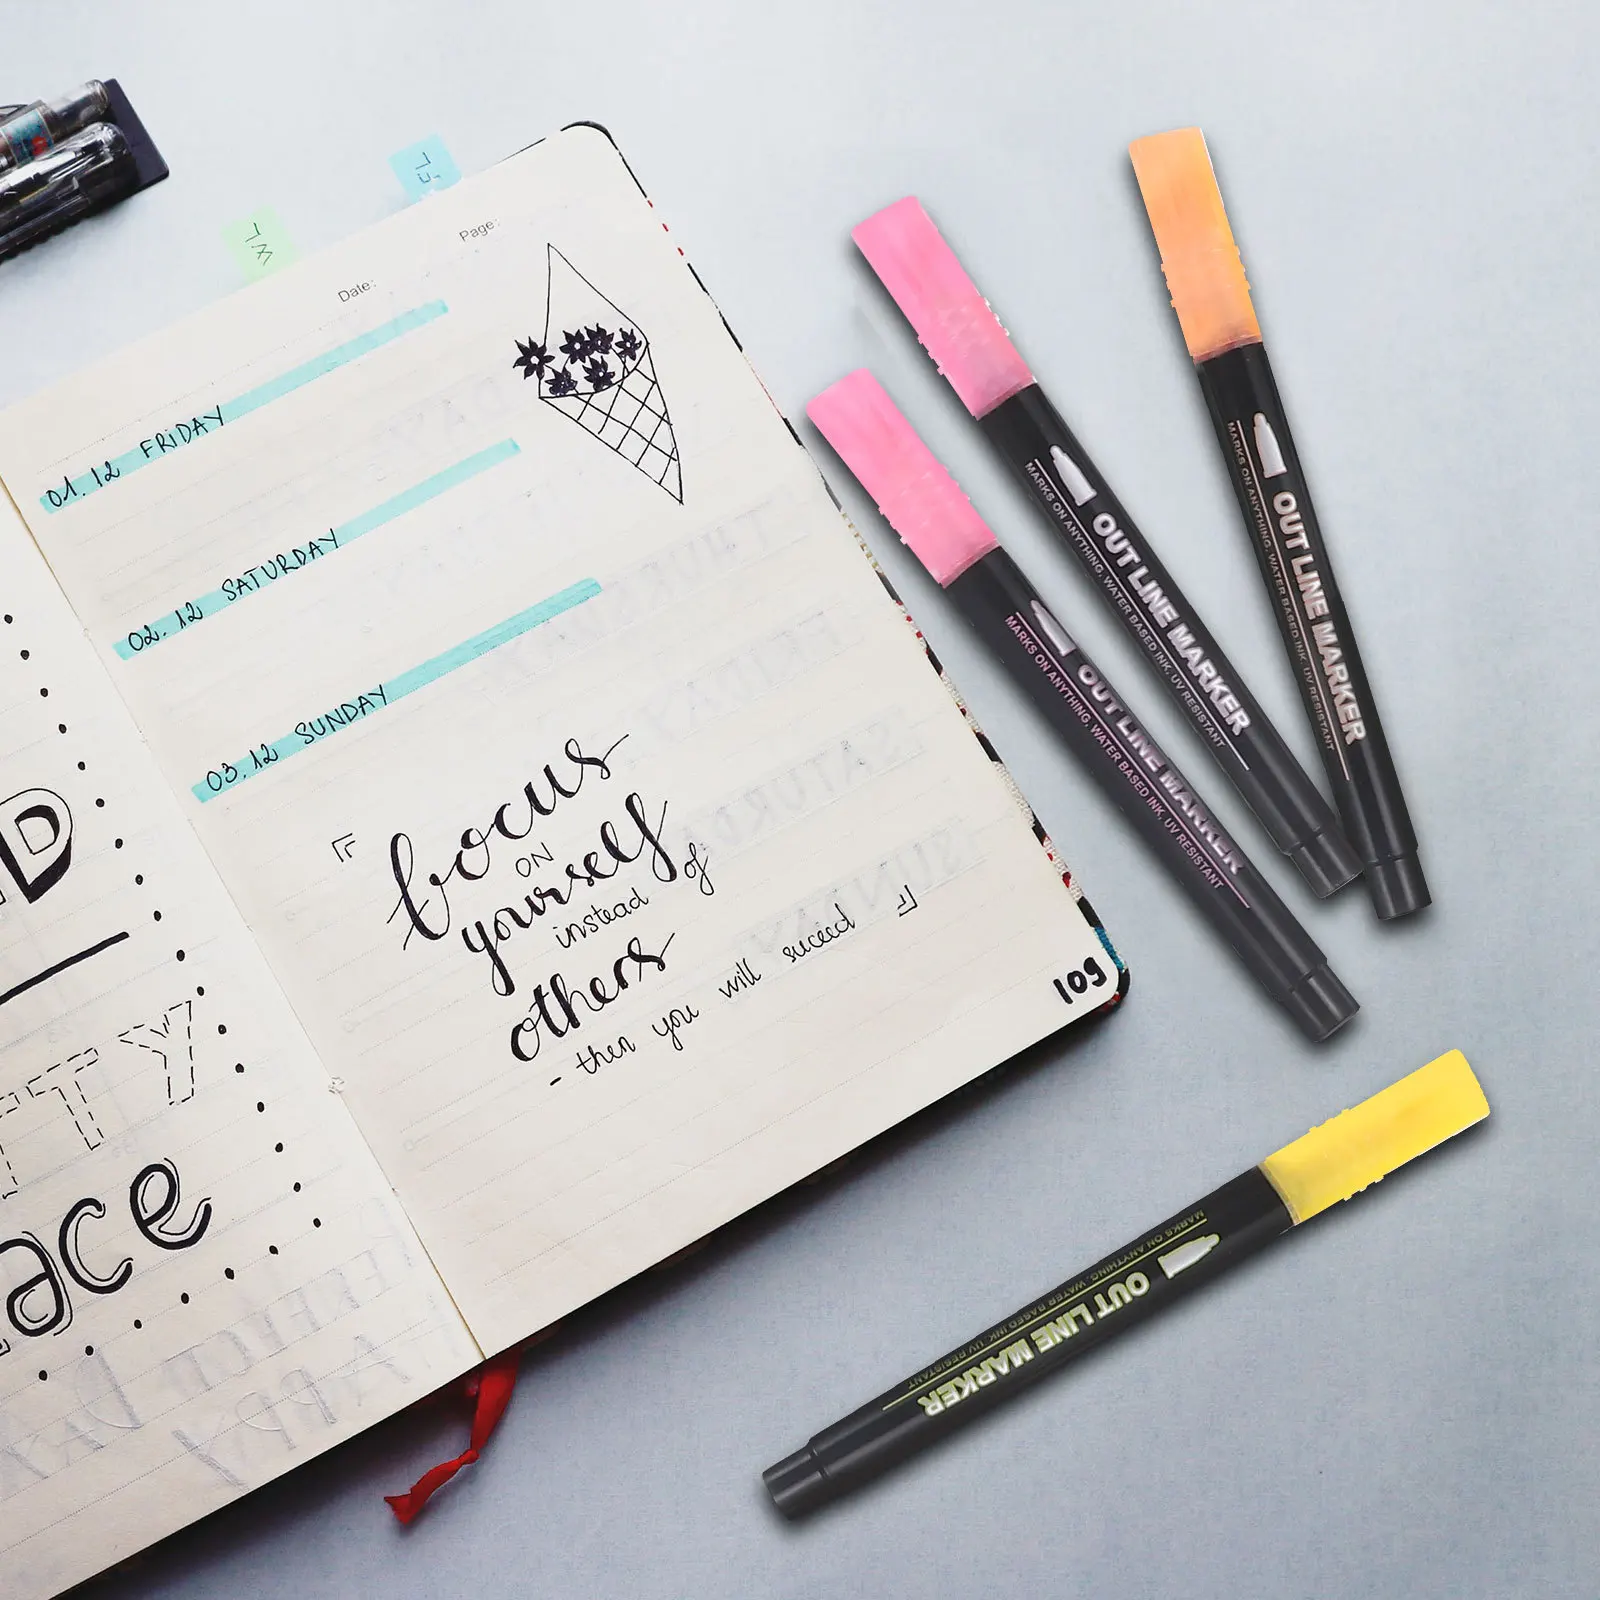 Page:
Date:
01.12 FRIDAY
02.12 SATURDAY
03.12 SUNDAY
focus
ON
yourself
instead of
others
- then you will suceed
109
D
TY
ace
OUT LINE MARKER
MARKS ON ANYTHING, WATER BASED INK, UV RESISTANT
OUT LINE MARKER
MARKS ON ANYTHING, WATER BASED INK, UV RESISTANT
OUT LINE MARKER
MARKS ON ANYTHING, WATER BASED INK, UV RESISTANT
OUT LINE MARKER
MARKS ON ANYTHING, WATER BASED INK, UV RESISTANT